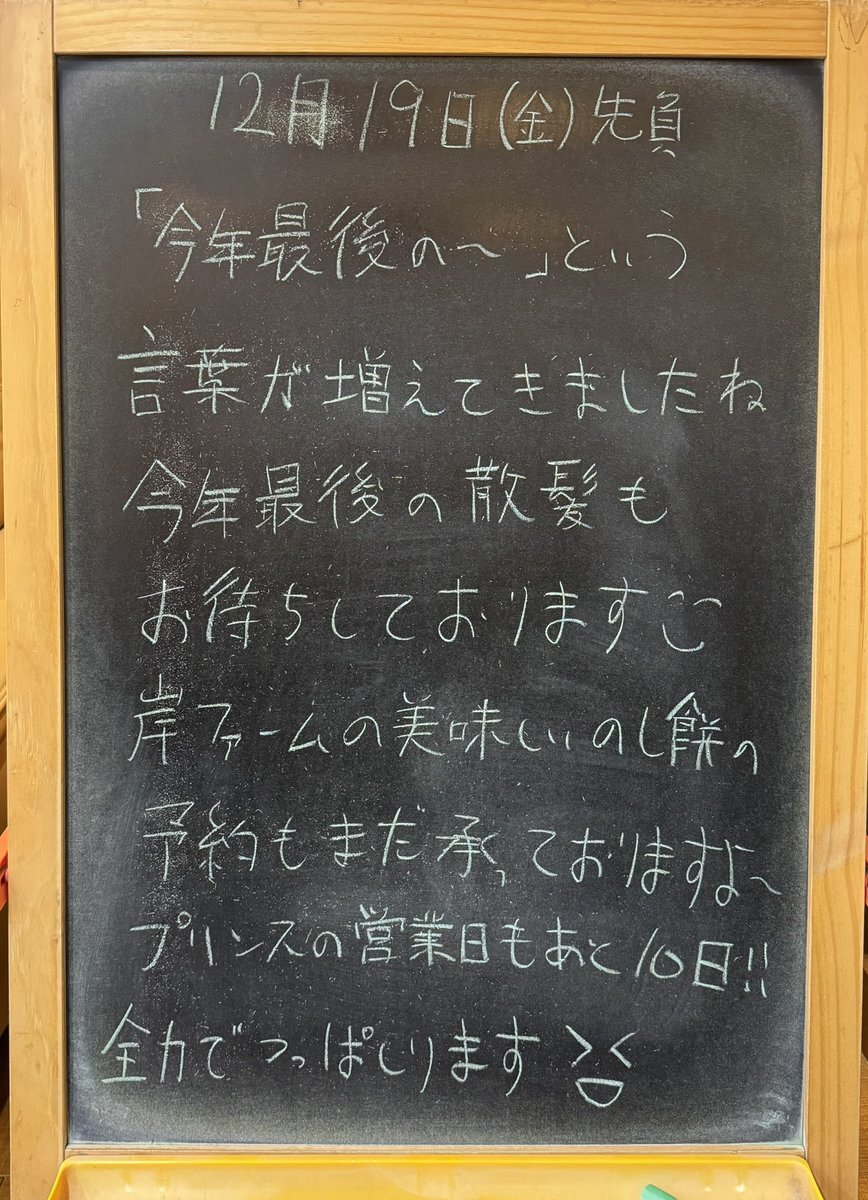 12月19日(金)先負
「今年最後の〜」という
言葉が増えてきましたね
今年最後の散髪も
お待ちしております
岸ファームの美味しいのし餅の
予約もまだ承っておりますよ〜
プリンスの営業日もあと10日!!
全力でつっぱしります